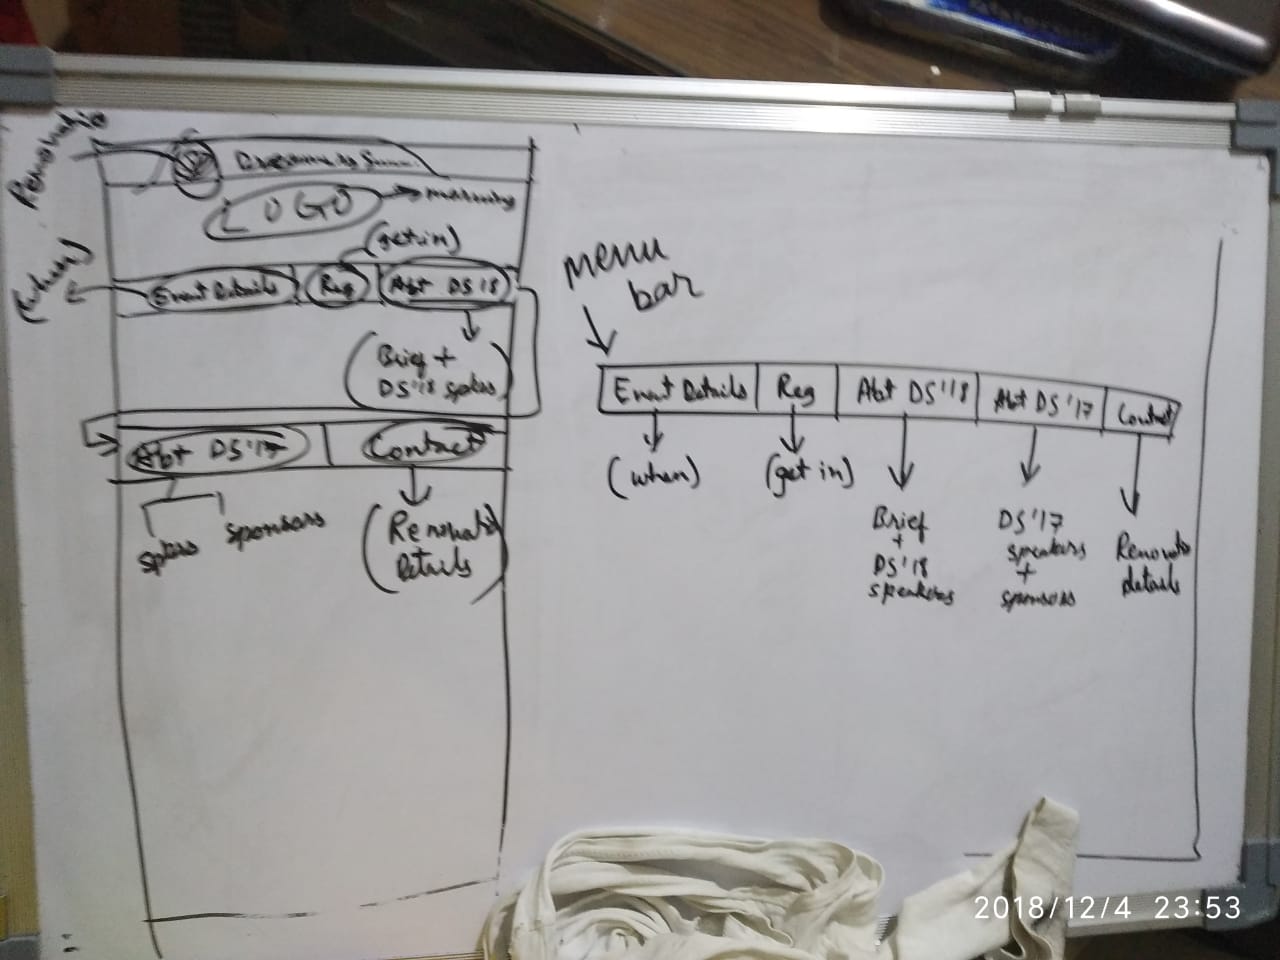 LOGO
(get in)
(when)
Event Details
Reg
Abt DS'18
(Brief +
DS'18 spkrs)
Abt DS'17
Contact
spkrs
sponsors
Details)
menu
bar
Event Details
Reg
Abt DS'18
Abt DS'17
Contact
(when)
(get in)
Brief
+
DS'18
speakers
DS'17
speakers
+
sponsors
details
2018/12/4 23:53